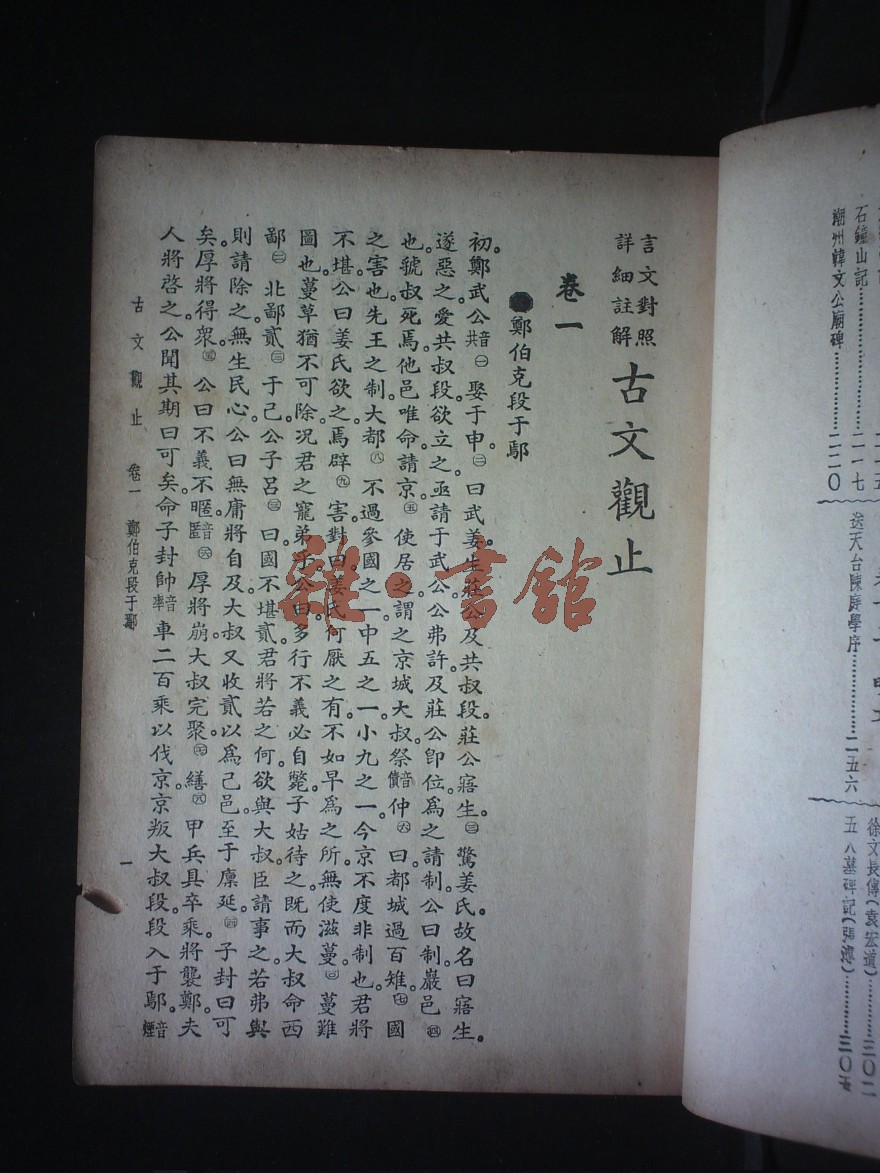 石鐘山記……………二一七
潮州韓文公廟碑……………二二〇
送天台陳庭學序……………二五六
徐文長傳(袁宏道)……………三〇二
五人墓碑記(張溥)……………三〇五
言文對照
詳細註解
古文觀止
卷一
鄭伯克段于鄢
初。鄭武公音共㊀娶于申。㊁曰武姜生莊公及共叔段。莊公寤生。㊂驚姜氏。故名曰寤生。
遂惡之。愛共叔段。欲立之。亟請于武公。公弗許。及莊公卽位。爲之請制。公曰。制巖邑㊃
也。虢叔死焉。他邑唯命。請京。㊄使居之。謂之京城大叔。祭音債仲㊅曰。都城過百雉。㊆國
之害也。先王之制。大都㊇不過參國之一。中五之一。小九之一。今京不度。非制也。君將
不堪。公曰。姜氏欲之。焉辟㊈害。對曰。姜氏何厭之有。不如早爲之所。無使滋蔓。蔓難
圖也。蔓草猶不可除。況君之寵弟乎。公曰。多行不義必自斃。子姑待之。旣而大叔命西
鄙 北鄙貳 于己。公子呂 曰。國不堪貳。君將若之何。欲與大叔。臣請事之。若弗與
則請除之。無生民心。公曰。無庸。將自及。大叔又收貳以爲己邑。至于廩延。子封曰。可
矣。厚將得衆。 公曰。不義不暱。音匿 厚將崩。大叔完聚。 繕 甲兵。具卒乘。將襲鄭。夫
人將啓之。公聞其期。曰。可矣。命子封帥音率車二百乘以伐京。京叛大叔段。段入于鄢。音煙
古文觀止 卷一 鄭伯克段于鄢 一
雜·書館